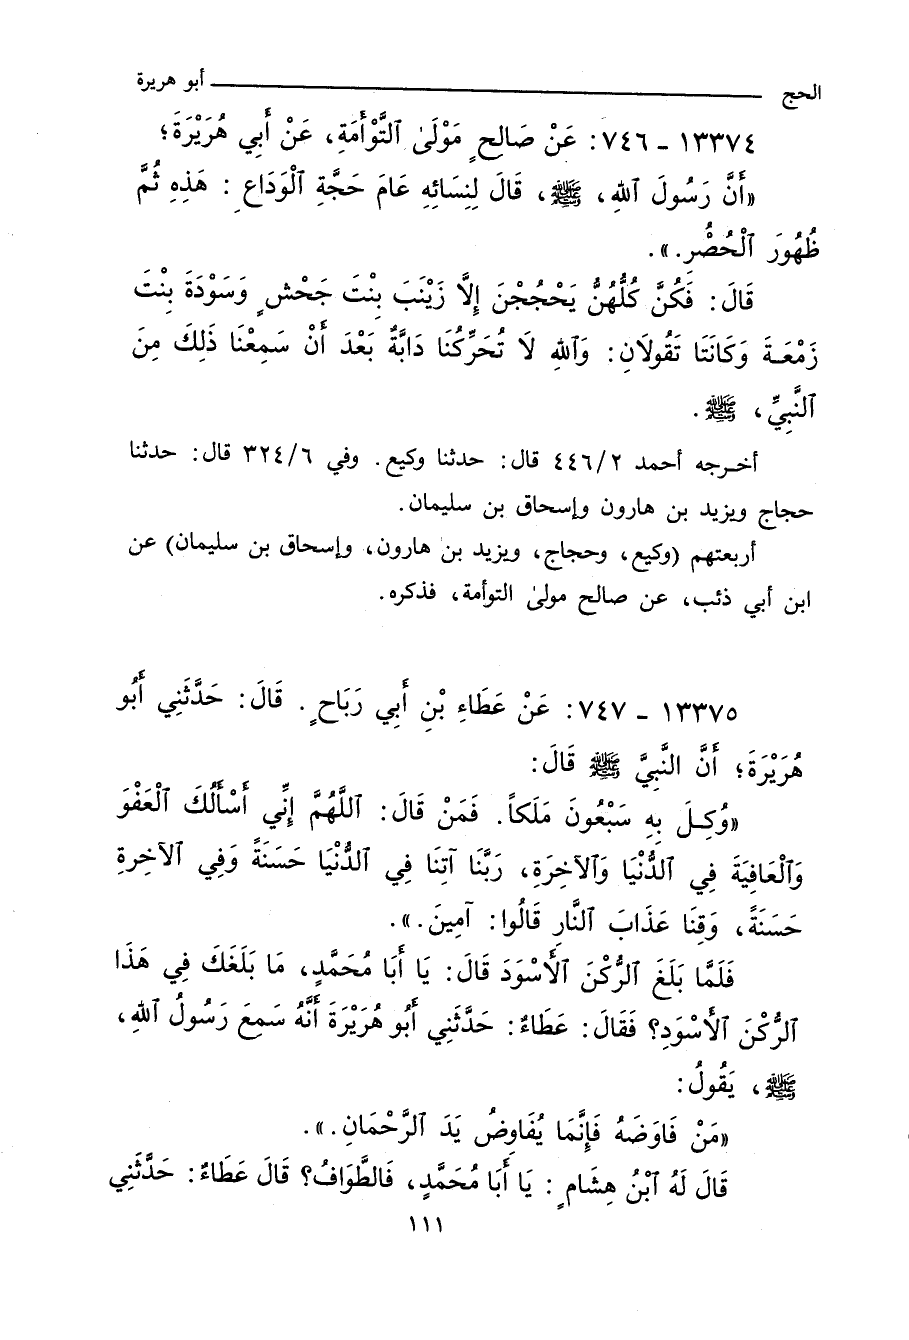 الحج ــــــ أبو هريرة
١٣٣٧٤ - ٧٤٦: عَنْ صَالِحٍ مَوْلَىٰ ٱلتَّوْأَمَةِ، عَنْ أَبِي هُرَيْرَةَ؛
«أَنَّ رَسُولَ ٱللهِ، ﷺ، قَالَ لِنِسَائِهِ عَامَ حَجَّةِ ٱلْوَدَاعِ: هَذِهِ ثُمَّ
ظُهُورَ ٱلْحُصُرِ.».
قَالَ: فَكُنَّ كُلُّهُنَّ يَحْجُجْنَ إِلَّا زَيْنَبَ بِنْتَ جَحْشٍ وَسَوْدَةَ بِنْتَ
زَمْعَةَ وَكَانَتَا تَقُولَانِ: وَٱللهِ لَا تُحَرِّكُنَا دَابَّةٌ بَعْدَ أَنْ سَمِعْنَا ذَلِكَ مِنَ
ٱلنَّبِيِّ، ﷺ.
أخرجه أحمد ٤٤٦/٢ قال: حدثنا وكيع. وفي ٣٢٤/٦ قال: حدثنا
حجاج ويزيد بن هارون وإسحاق بن سليمان.
أربعتهم (وكيع، وحجاج، ويزيد بن هارون، وإسحاق بن سليمان) عن
ابن أبي ذئب، عن صالح مولىٰ التوأمة، فذكره.
١٣٣٧٥ - ٧٤٧: عَنْ عَطَاءِ بْنِ أَبِي رَبَاحٍ. قَالَ: حَدَّثَنِي أَبُو
هُرَيْرَةَ؛ أَنَّ النَّبِيَّ ﷺ قَالَ:
«وُكِلَ بِهِ سَبْعُونَ مَلَكاً. فَمَنْ قَالَ: ٱللَّهُمَّ إِنِّي أَسْأَلُكَ ٱلْعَفْوَ
وَٱلْعَافِيَةَ فِي ٱلدُّنْيَا وَٱلآخِرَةِ، رَبَّنَا آتِنَا فِي ٱلدُّنْيَا حَسَنَةً وَفِي ٱلآخِرةِ
حَسَنَةً، وَقِنَا عَذَابَ ٱلنَّارِ قَالُوا: آمِينَ.».
فَلَمَّا بَلَغَ ٱلرُّكْنَ ٱلأَسْوَدَ قَالَ: يَا أَبَا مُحَمَّدٍ، مَا بَلَغَكَ فِي هَذَا
ٱلرُّكْنِ ٱلأَسْوَدِ؟ فَقَالَ: عَطَاءٌ: حَدَّثَنِي أَبُو هُرَيْرَةَ أَنَّهُ سَمِعَ رَسُولُ ٱللهِ،
ﷺ، يَقُولُ:
«مَنْ فَاوَضَهُ فَإِنَّمَا يُفَاوِضُ يَدَ ٱلرَّحْمَانِ.».
قَالَ لَهُ ٱبْنُ هِشَامٍ: يَا أَبَا مُحَمَّدٍ، فَالطَّوَافُ؟ قَالَ عَطَاءٌ: حَدَّثَنِي
١١١